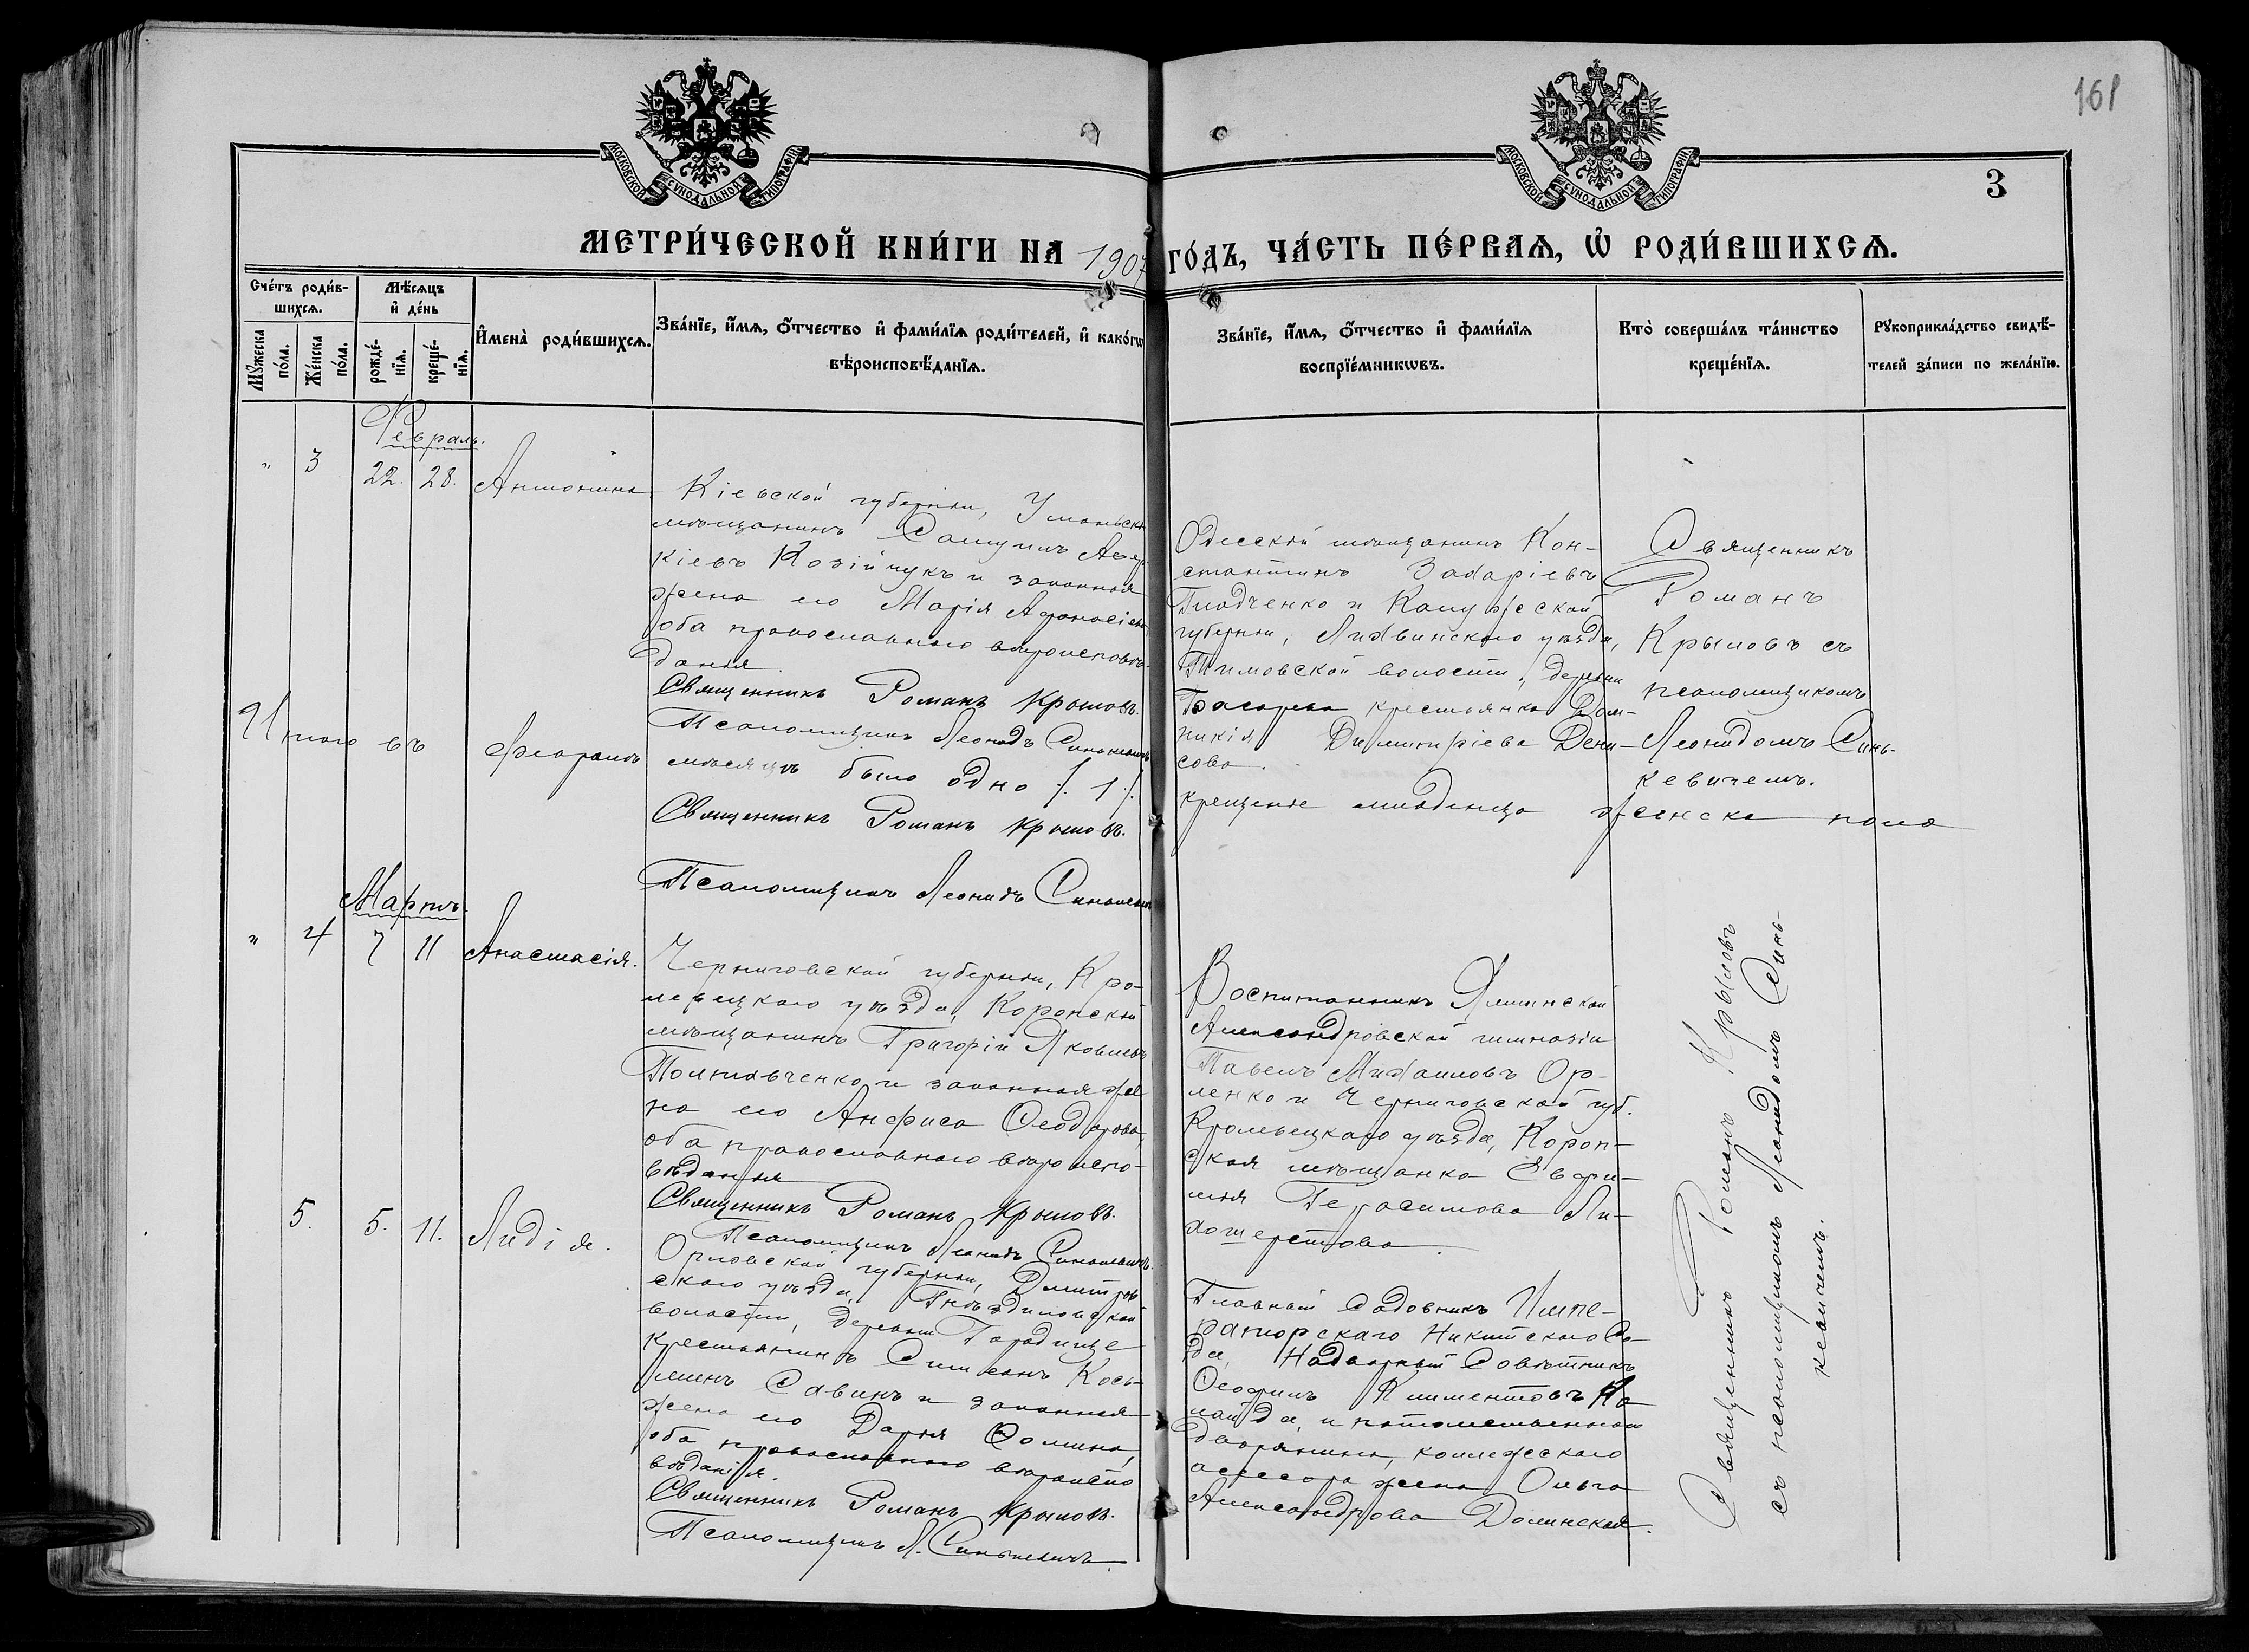 161
МОСКОВСКОЙ СУНОДАЛЬНОЙ ТИПОГРАФІИ
МОСКОВСКОЙ СУНОДАЛЬНОЙ ТИПОГРАФІИ
3
МЕТРИ́ЧЕСКОЙ КНИ́ГИ НА 1907 ГО́ДЪ, ЧА́СТЬ ПЕ́РВАЯ, Ѡ РОДИ́ВШИХСЯ.
Сче́тъ роди́в-
шихся.
Мꙋжеска по́ла.
Же́нска по́ла.
Мѣ́сяцъ
и҆ де́нь
рожде́-
нїя.
креще́-
нїя.
И҆мена̀ роди́вшихся.
Зва́нїе, и҆́мя, ѻ҆́тчество и҆ фами́лїя роди́телей, и҆ како́гѡ
вѣроисповѣ́данїя.
Зва́нїе, и҆́мя, ѻ҆́тчество и҆ фами́лїя
воспрїе́мникѡвъ.
Кто̀ соверша́лъ та́инство
креще́нїя.
Рꙋкоприкла́дство свидѣ́-
телей за́писи по жела́нїю.
Февраль.
" 3 22. 28. Антонина
Кіевской губерніи, Уманьскій
мѣщанинъ Самуилъ
кіевъ Козійчукъ и законная
жена его Марія Афанасіева
оба православнаго вѣроисповѣ-
данія.
Священникъ Романъ Крыловъ.
Псаломщикъ Леонидъ Синькевичъ
Одесскій мѣщанинъ Кон-
стантинъ Захаріевъ
Гладченко и Калужской
губерніи, Лихвинскаго уѣзда,
волости, деревни
крестьянка Дом-
никія Димитріева Дени-
сова.
Священникъ
Романъ
Крыловъ съ
псаломщикомъ
Леонидомъ Синь-
кевичемъ.
Итого въ Февралѣ мѣсяцѣ было одно /. 1 /. крещеніе младенца женска пола
Священникъ Романъ Крыловъ.
Псаломщикъ Леонидъ Синькевичъ
Мартъ.
" 4 7 11 Анастасія.
Черниговской губерніи, Кро-
левецкаго уѣзда, Коропскій
мѣщанинъ Григорій Яковлевъ
Полтавченко и законная же-
на его Анфиса Ѳеодорова,
оба православнаго вѣроиспо-
вѣданія
Священникъ Романъ Крыловъ.
Псаломщикъ Леонидъ Синькевичъ
Воспитанникъ Ялтинской
Александровской гимназіи
Павелъ Михаиловъ Ор-
ленко и Черниговской губ.
Кролевецкаго уѣзда, Короп-
ская мѣщанка Евфи-
мія Герасимова Ли-
хошерстова.
5. 5. 11. Лидія.
Орловской губерніи, Дмитров-
скаго уѣзда, Гнѣздиловской
волости, деревни Городище
крестьянинъ Симеонъ Кось-
минъ Савинъ и законная
жена его Дарія Ѳомина,
оба православнаго вѣроиспо
вѣданія.
Священникъ Романъ Крыловъ.
Псаломщикъ Л. Синькевичъ.
Главный Садовникъ Импе-
раторскаго Никитскаго Са-
да, Надворный Совѣтникъ
Ѳеофилъ Климентовъ Ка-
лайда, и потомственная
дворянина, коллежскаго
асессора жена Ольга
Александрова Долинская.
Священникъ Романъ Крыловъ
съ псаломщикомъ Леонидомъ Синь-
кевичемъ.